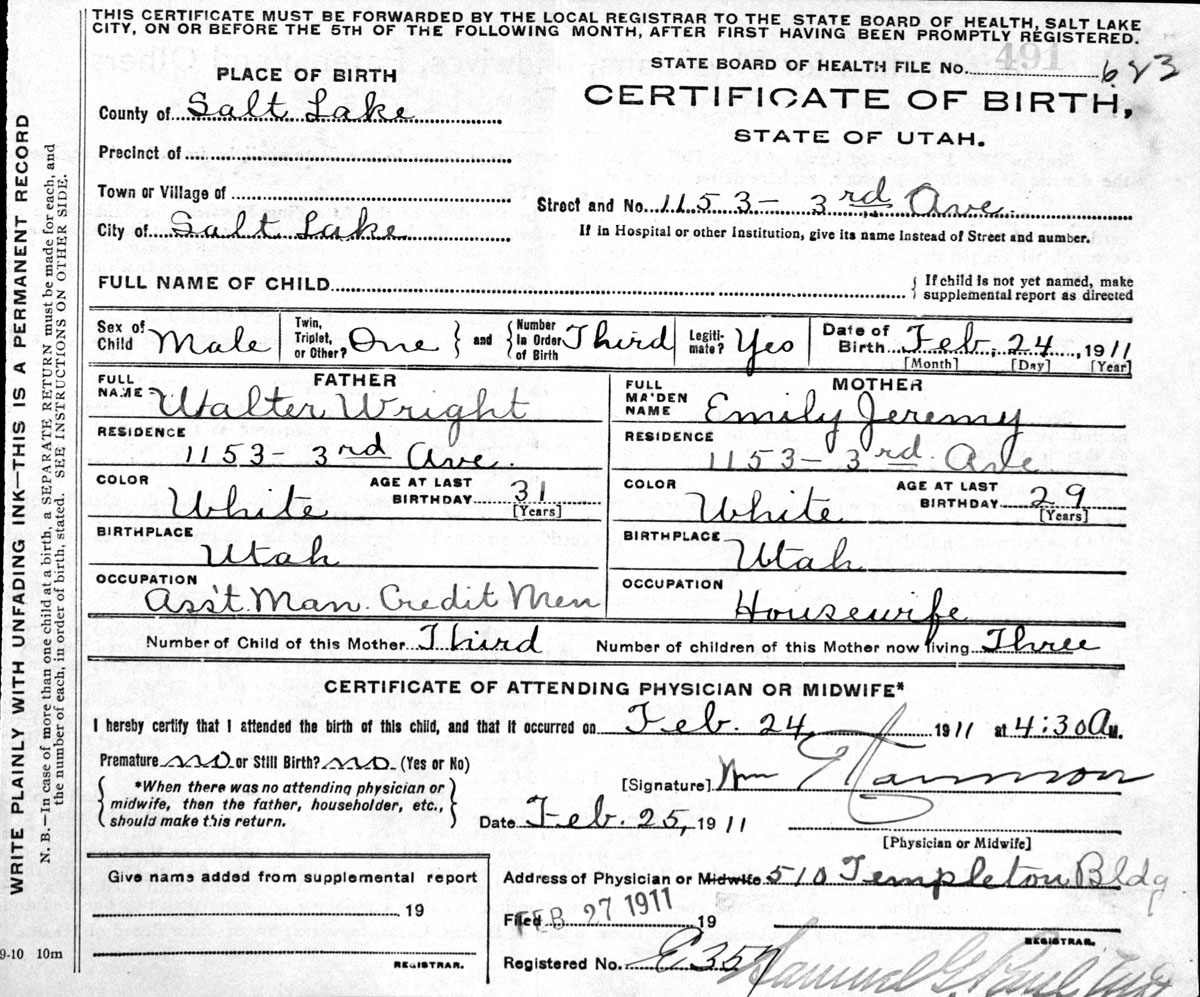 THIS CERTIFICATE MUST BE FORWARDED BY THE LOCAL REGISTRAR TO THE STATE BOARD OF HEALTH, SALT LAKE
CITY, ON OR BEFORE THE 5TH OF THE FOLLOWING MONTH, AFTER FIRST HAVING BEEN PROMPTLY REGISTERED.
WRITE PLAINLY WITH UNFADING INK—THIS IS A PERMANENT RECORD
N. B.—In case of more than one child at a birth, a SEPARATE RETURN must be made for each, and
the number of each, in order of birth, stated. SEE INSTRUCTIONS ON OTHER SIDE.
PLACE OF BIRTH
County of Salt Lake
Precinct of
Town or Village of
City of Salt Lake
STATE BOARD OF HEALTH FILE No. 491 623
CERTIFICATE OF BIRTH,
STATE OF UTAH.
Street and No. 1153 - 3rd Ave.
If in Hospital or other Institution, give its name instead of Street and number.
FULL NAME OF CHILD
If child is not yet named, make
supplemental report as directed
Sex of Child Male
Twin, Triplet, or Other? One and Number in Order of Birth Third
Legiti-mate? Yes
Date of Birth Feb. 24, 1911
[Month] [Day] [Year]
FATHER
FULL NAME Walter Wright
RESIDENCE
1153 - 3rd Ave.
COLOR White
AGE AT LAST BIRTHDAY 31
[Years]
BIRTHPLACE
Utah
OCCUPATION
Ass't. Man. Credit Men
MOTHER
FULL MAIDEN NAME Emily Jeremy
RESIDENCE
1153 - 3rd Ave
COLOR White
AGE AT LAST BIRTHDAY 29
[Years]
BIRTHPLACE
Utah
OCCUPATION
Housewife
Number of Child of this Mother Third Number of children of this Mother now living Three
CERTIFICATE OF ATTENDING PHYSICIAN OR MIDWIFE*
I hereby certify that I attended the birth of this child, and that it occurred on Feb. 24 1911 at 4:30 A M.
Premature no or Still Birth? no (Yes or No)
*When there was no attending physician or
midwife, then the father, householder, etc.,
should make this return.
[Signature] Wm
Date Feb. 25, 1911
[Physician or Midwife]
Give name added from supplemental report
19
REGISTRAR.
9-10 10m
Address of Physician or Midwife 510 Templeton Bldg
Filed FEB 27 1911 19
REGISTRAR.
Registered No. E357
Samuel G. Paul